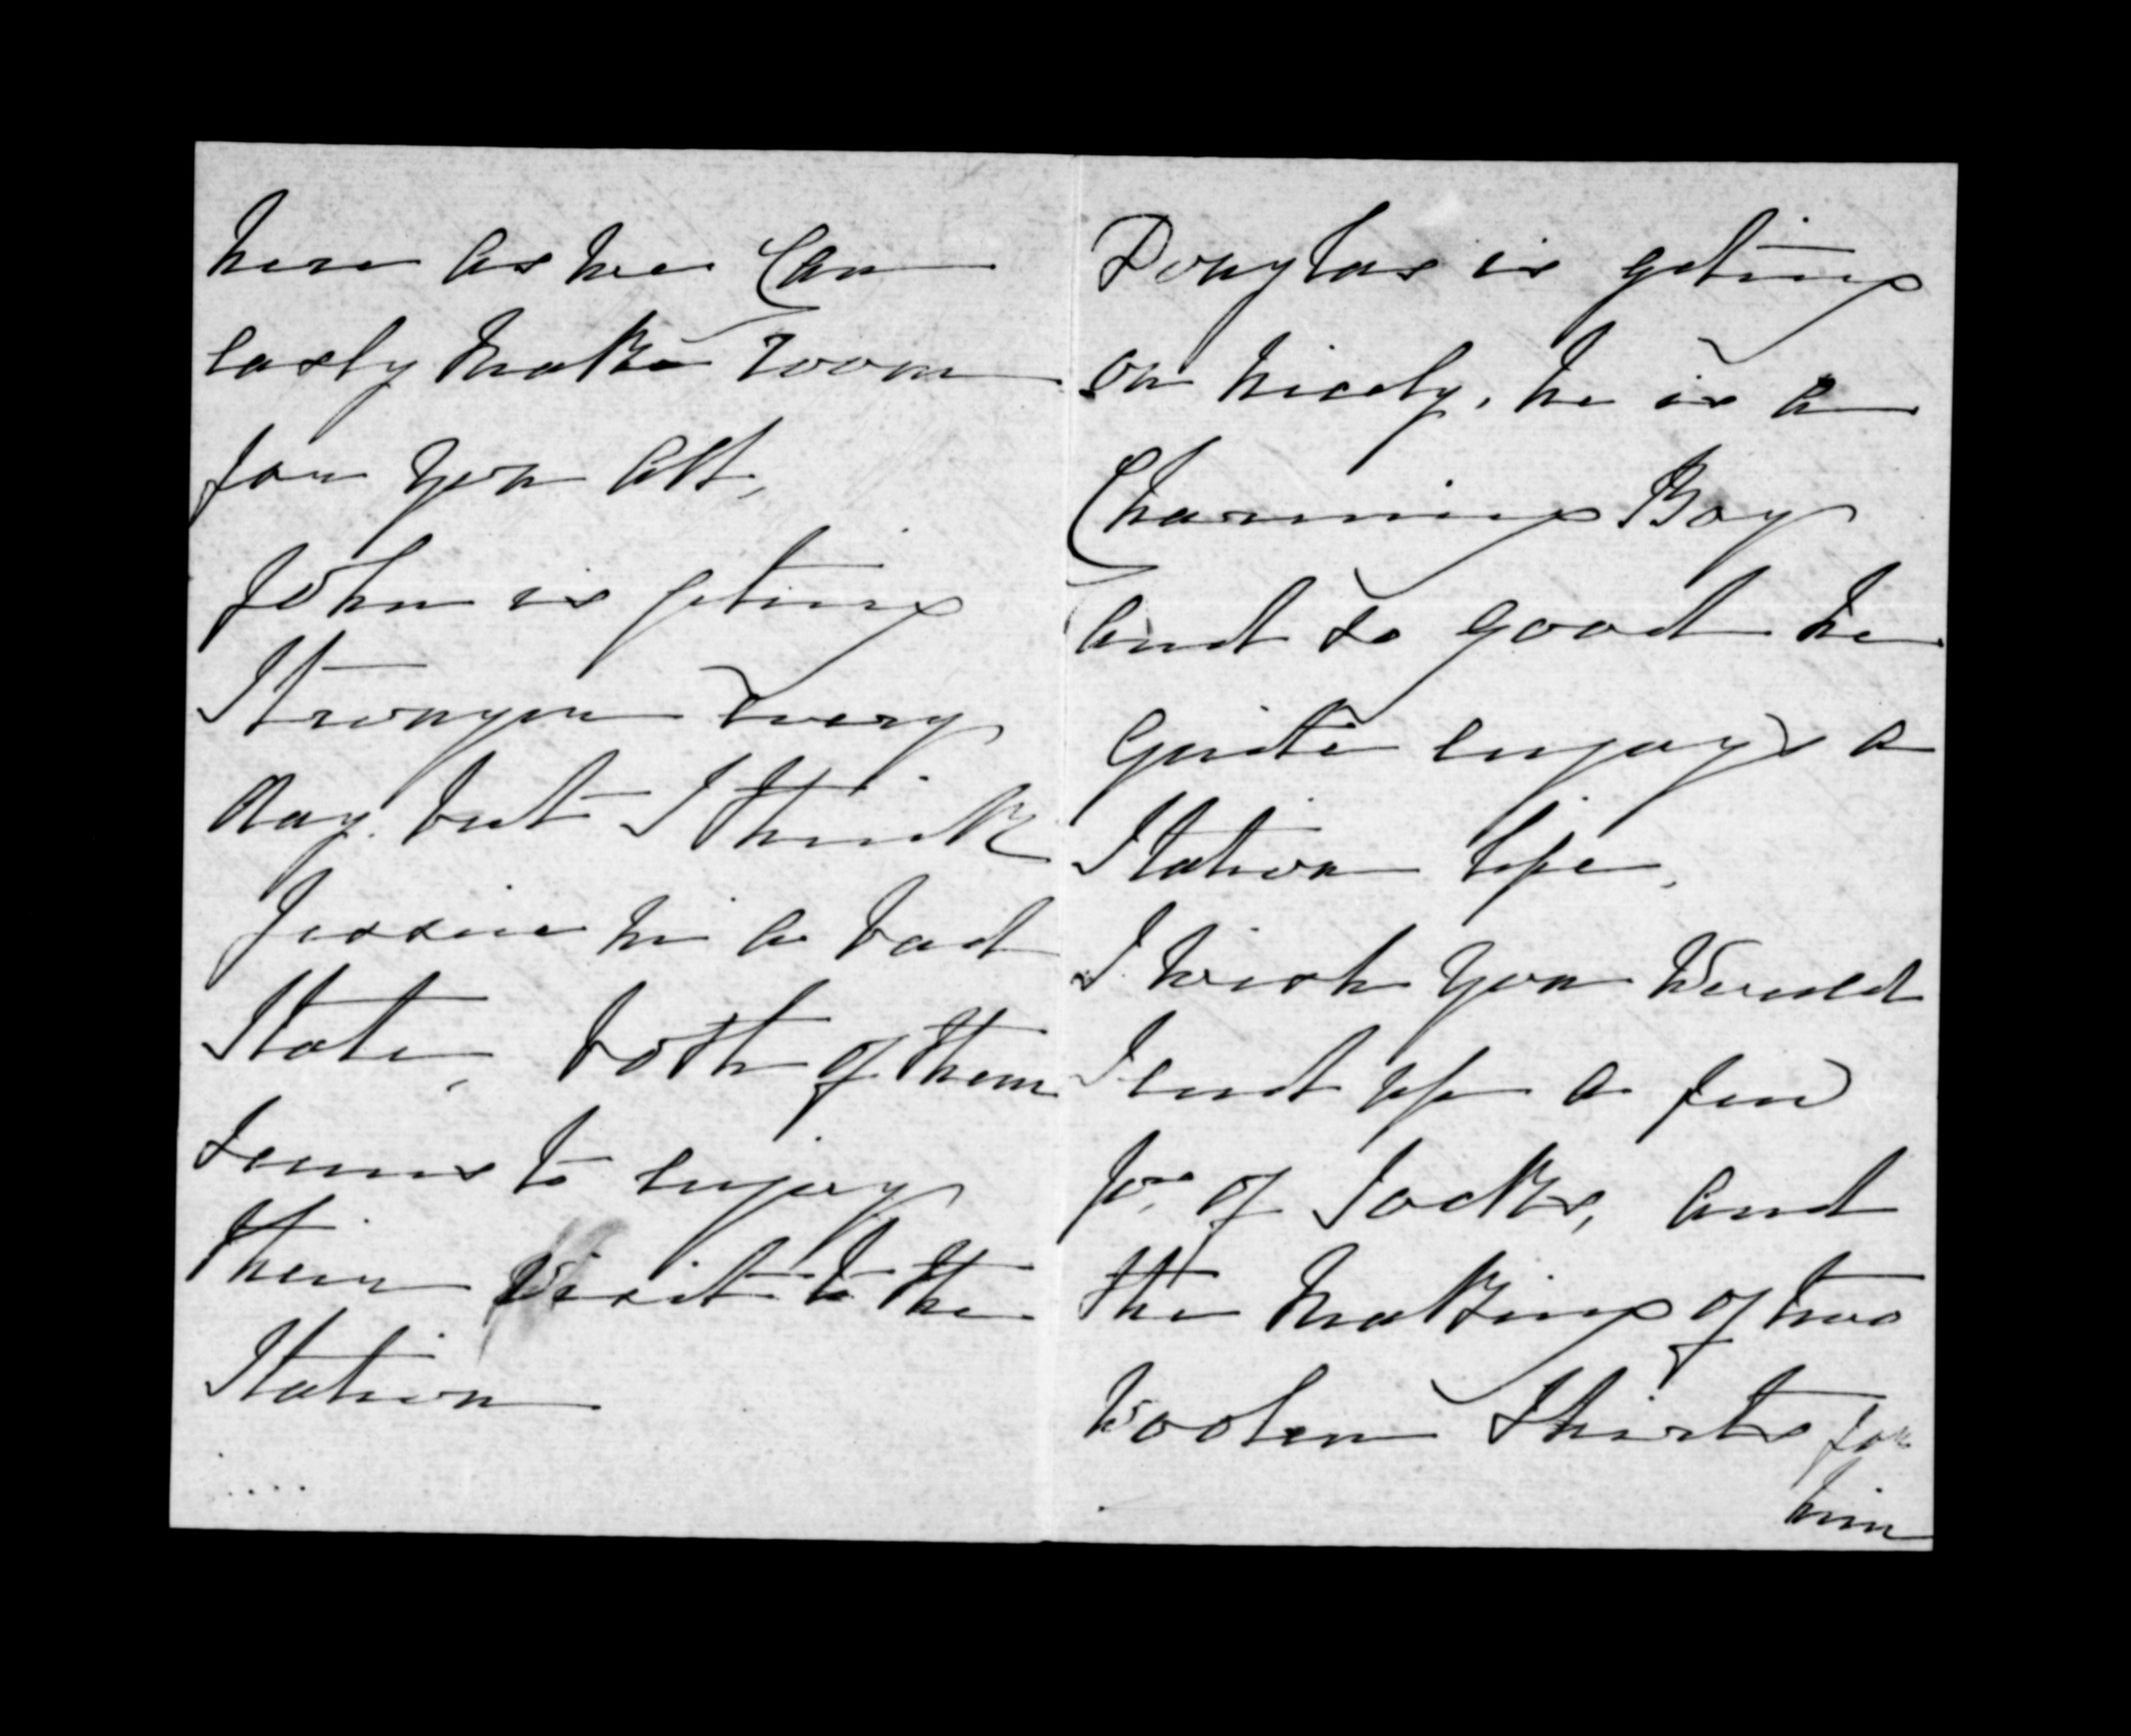 here as we can
easly make room
for you all,
John is geting
Stronger every
day. but I think
Jessie in a bad
State, both of them
seems to enjoy
their visit to the
Station
Douglas is geting
on nicely, he is a
Charming Boy
and so good he
quite enjoys a
Station life,
I wish you would
Send up a few
prs of Socks, and
the making of two
woolen Shirts for
him